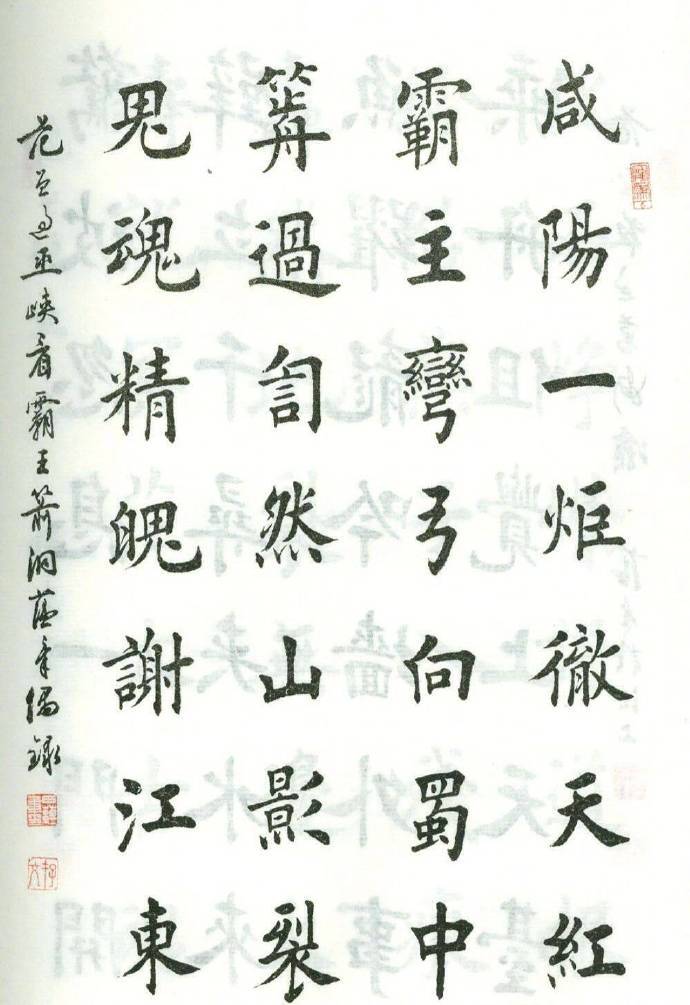 咸陽一炬徹天紅
霸主彎弓向蜀中
箭過訇然山影裂
鬼魂精魄謝江東
巫峽看霸王箭洞